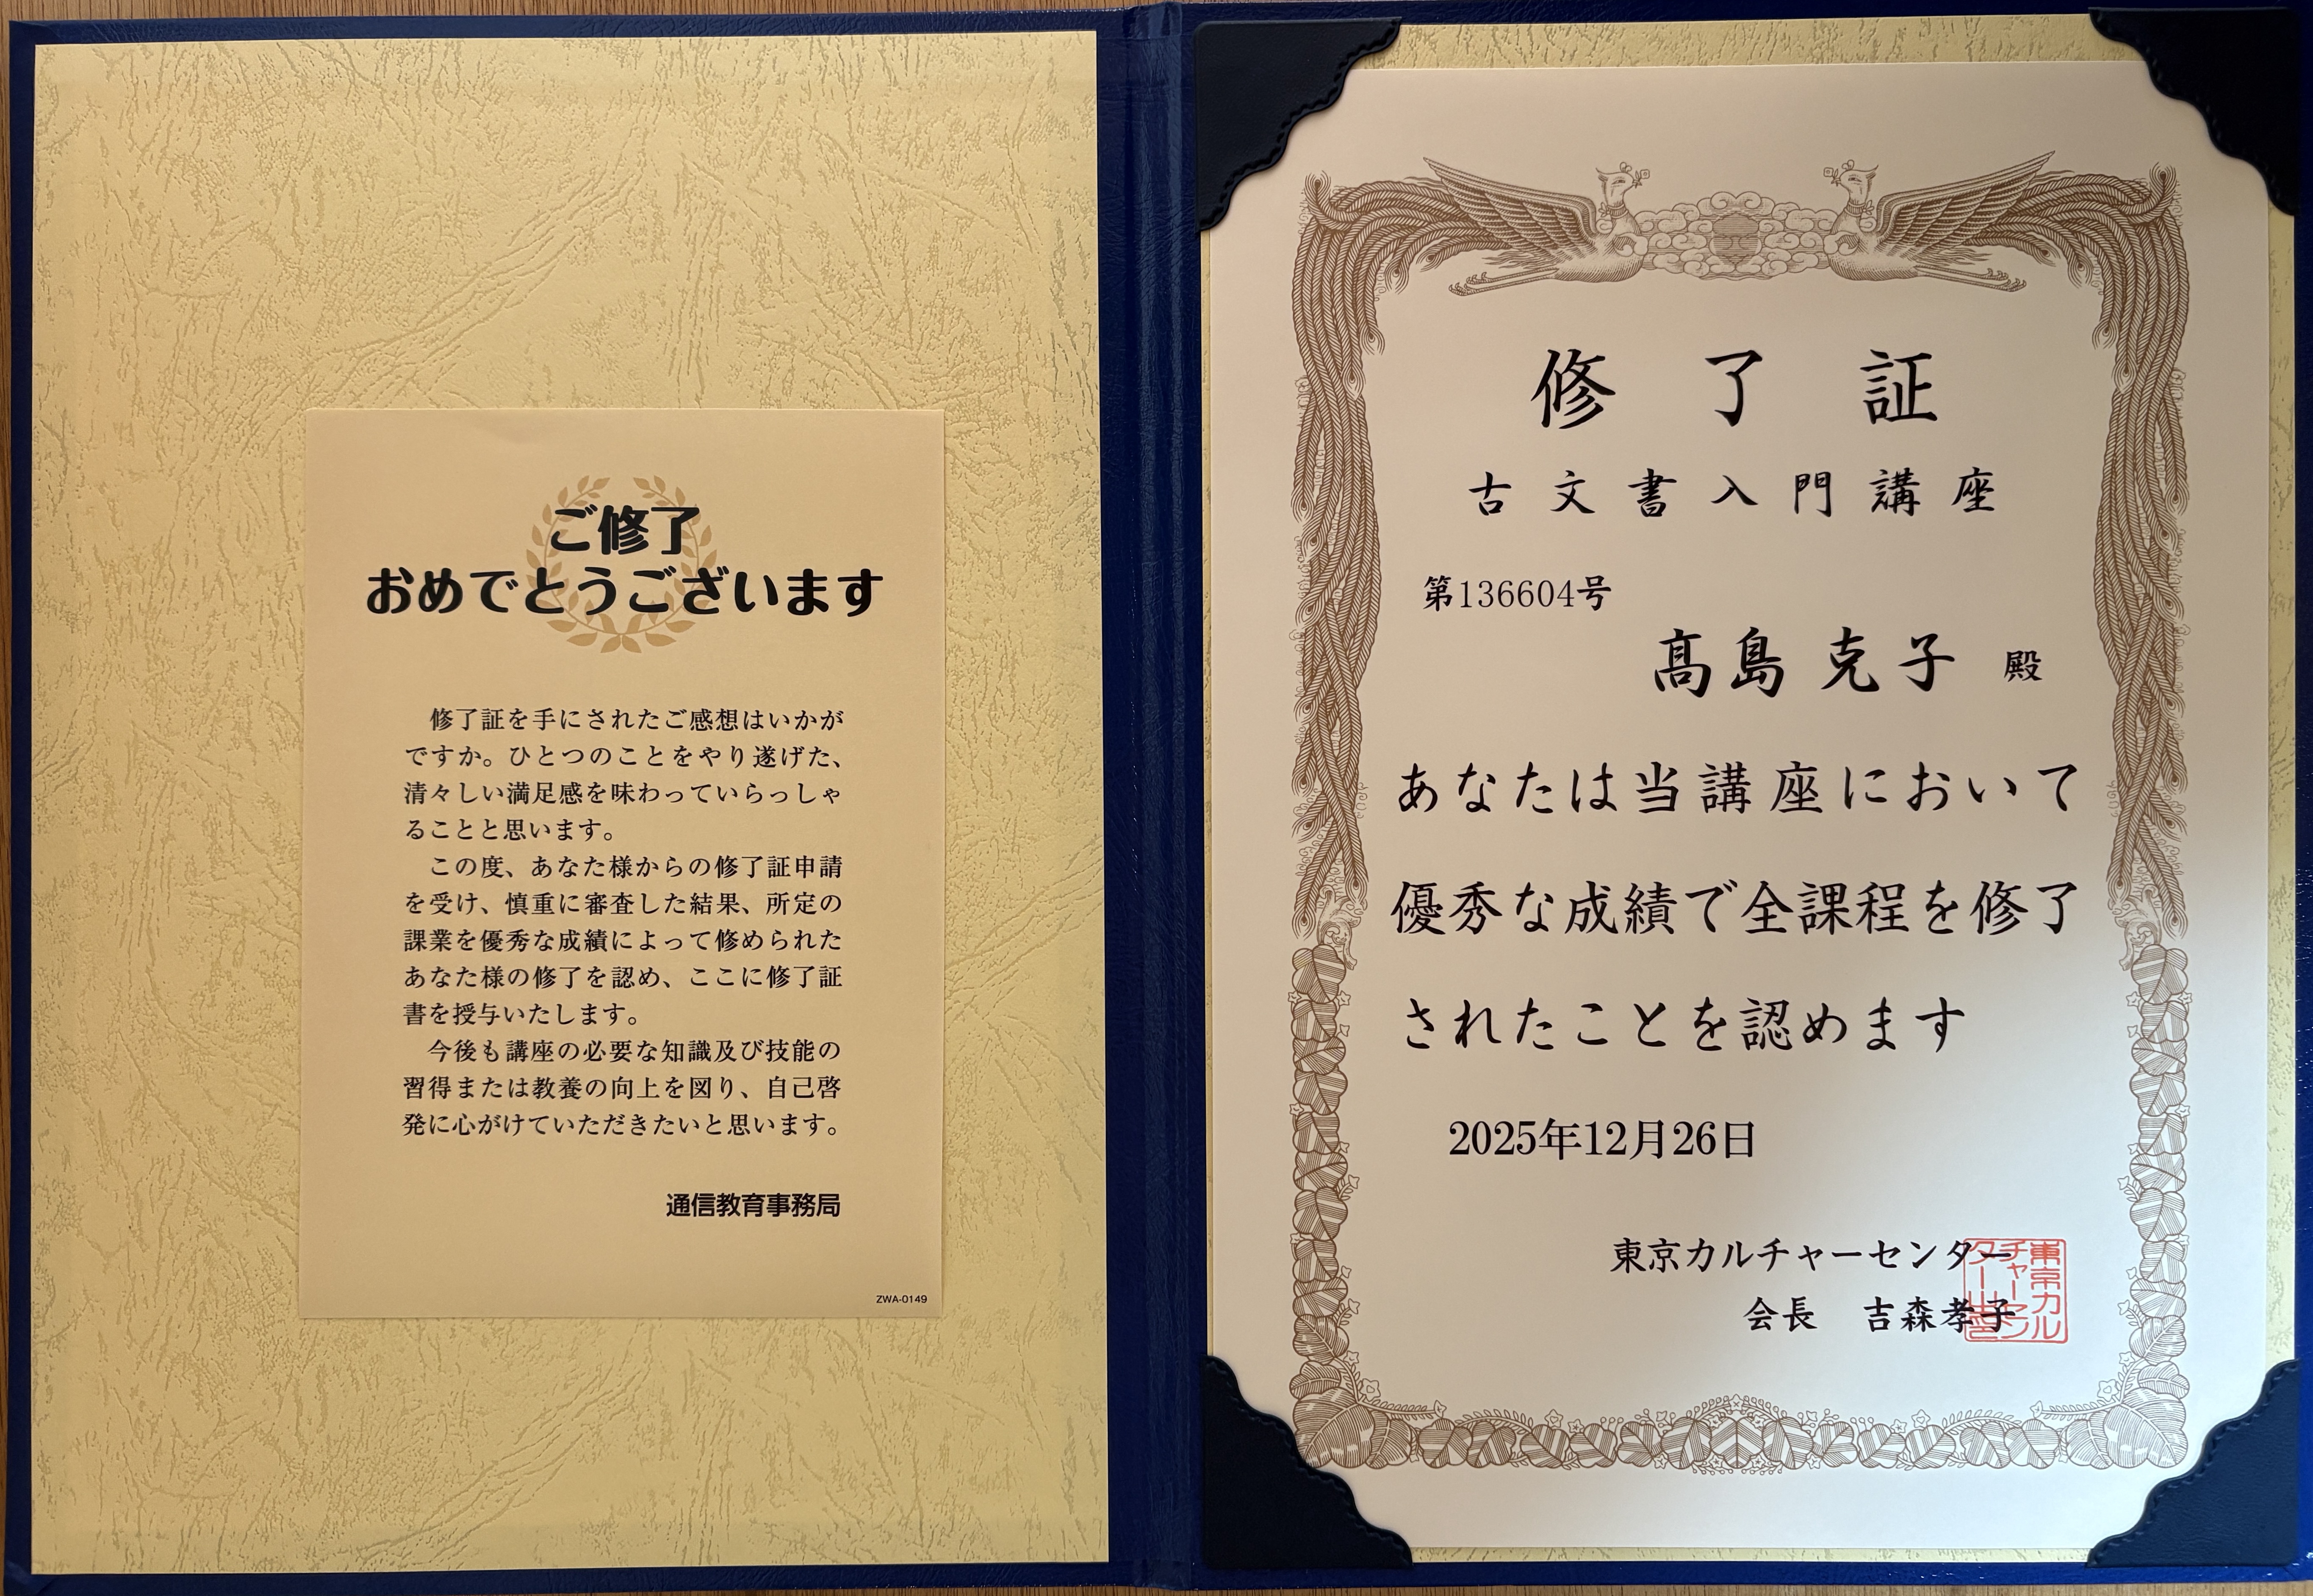 ご修了
おめでとうございます
修了証を手にされたご感想はいかが
ですか。ひとつのことをやり遂げた、
清々しい満足感を味わっていらっしゃ
ることと思います。
この度、あなた様からの修了証申請
を受け、慎重に審査した結果、所定の
課業を優秀な成績によって修められた
あなた様の修了を認め、ここに修了証
書を授与いたします。
今後も講座の必要な知識及び技能の
習得または教養の向上を図り、自己啓
発に心がけていただきたいと思います。
通信教育事務局
ZWA-0149
修了証
古文書入門講座
第136604号
髙島克子 殿
あなたは当講座において
優秀な成績で全課程を修了
されたことを認めます
2025年12月26日
東京カルチャーセンター
会長 吉森孝子
東京カル
チャーセン
ター